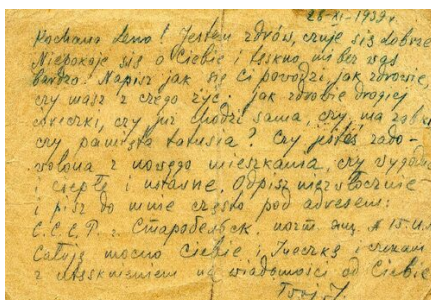 28-XI-1939r.
Kochana Leno! Jestem zdrów, czuję się dobrze
Niepokoję się o Ciebie i teskno mi bez was
bardzo. Napisz jak się Ci powodzi, jak zdrowie,
czy masz z czego żyć. jak zdrowie drogiej
czy już chodzi sama, czy ma ząbki
czy pamięta tatusia? Czy jesteś zado-
wolona z nowego mieszkania, czy wygodne
i ciepłe i własne. Odpisz niezwłocznie
i pisz do mnie często pod adresem:
С.С.С.Р. г. Старобельск. почт. ящ. № 15.
Całuję mocno Ciebie i Ineczkę i czekam
z utęsknieniem na wiadomości od Ciebie
Twój J